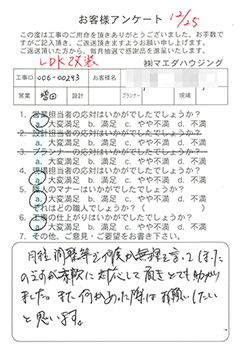 お客様アンケート 12/25
この度は工事のご用命を頂きありがとうございました。お手数で
すがご記入頂き、ご返送頂きますようお願い申し上げます。
ご返送頂いた方から、毎月抽選で感謝品を差し上げます。
LDK改装 ㈱マエダハウジング
工事ID 006-00293 お客様名
営業 設計 プランナー 現場
1. 営業担当者の応対はいかがでしたでしょうか?
a.大変満足 b.満足 c.やや不満 d.不満
2. 設計担当者の応対はいかがでしたでしょうか?
a.大変満足 b.満足 c.やや不満 d.不満
3. プランナーの応対はいかがでしたでしょうか?
a.大変満足 b.満足 c.やや不満 d.不満
4. 現場担当者の応対はいかがでしたでしょうか?
a.大変満足 b.満足 c.やや不満 d.不満
5. 職人のマナーはいかがでしたでしょうか?
a.大変満足 b.満足 c.やや不満 d.不満
それはどの職人でしょうか?( )
6. 工事の仕上がりはいかがでしたでしょうか?
a.大変満足 b.満足 c.やや不満 d.不満
7. その他、ご意見・ご要望をお書き下さい。
日程調整等で何度か無理を言ってしまった
のですが柔軟に対応して頂きとても助かり
ました。また何かあった際はお願いしたい
と思います。